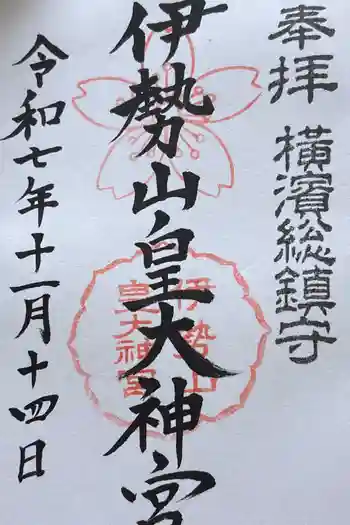 奉拝
横濱総鎮守
伊勢山皇大神宮
伊勢山
皇大神宮
令和七年十一月十四日